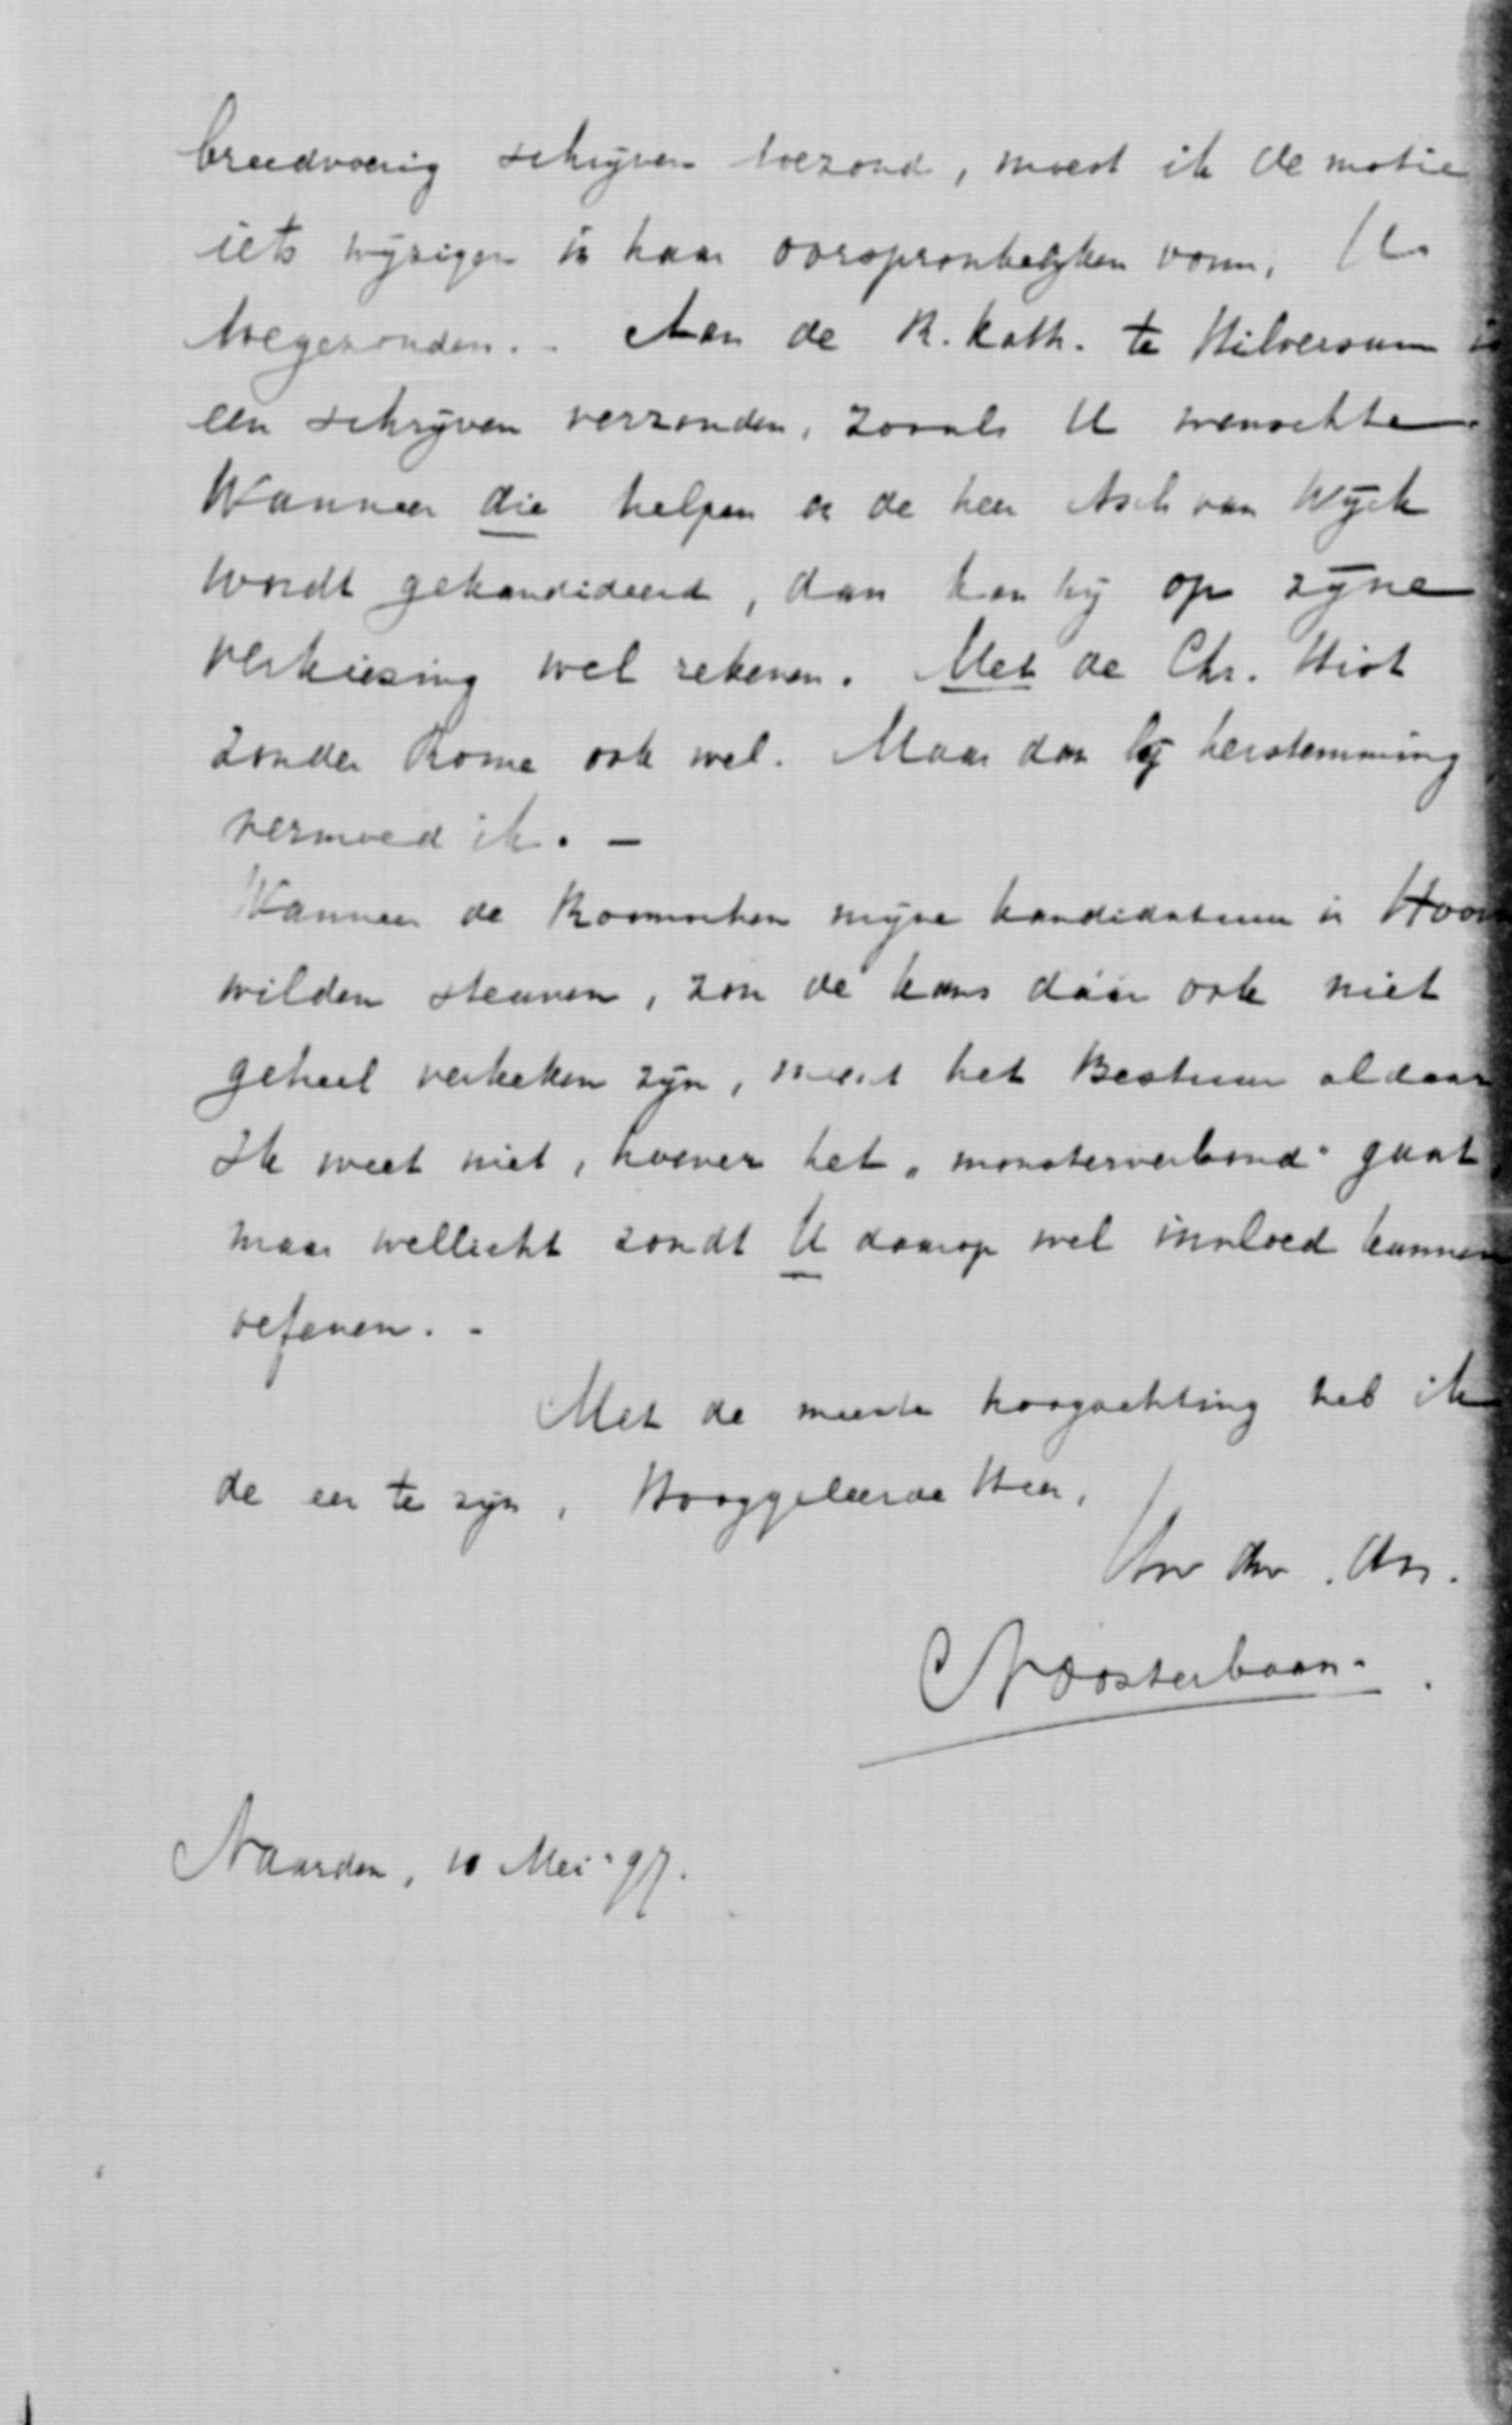 breedvoerig schrijven toezond, moest ik de motie
iets wijzigen in haar oorspronkelijken vorm, U
toegezonden. - Aan de R. Kath. te Hilversum is
een schrijven verzonden, zooals U wenschte.
Wanneer die helpen en de heer Asch van Wijck
wordt gekandideerd, dan kan hij op zijne
verkiezing wel rekenen. Met de Chr. Hist
zonder Rome ook wel. Maar dan bij herstemming
vermoed ik. -
Wanneer de Roomschen mijne kandidatuur in Hoorn
wilden steunen, zou de kans dáár ook niet
geheel verkeken zijn, meent het Bestuur aldaar
Ik weet niet, hoever het „monsterverbond" gaat,
maar wellicht zoudt U daarop wel invloed kunnen
oefenen. -
Met de meeste hoogachting heb ik
de eer te zijn, Hooggeleerde Heer,
Uw dw. dn.
Oosterbaan.
Naarden, 10 Mei '97.